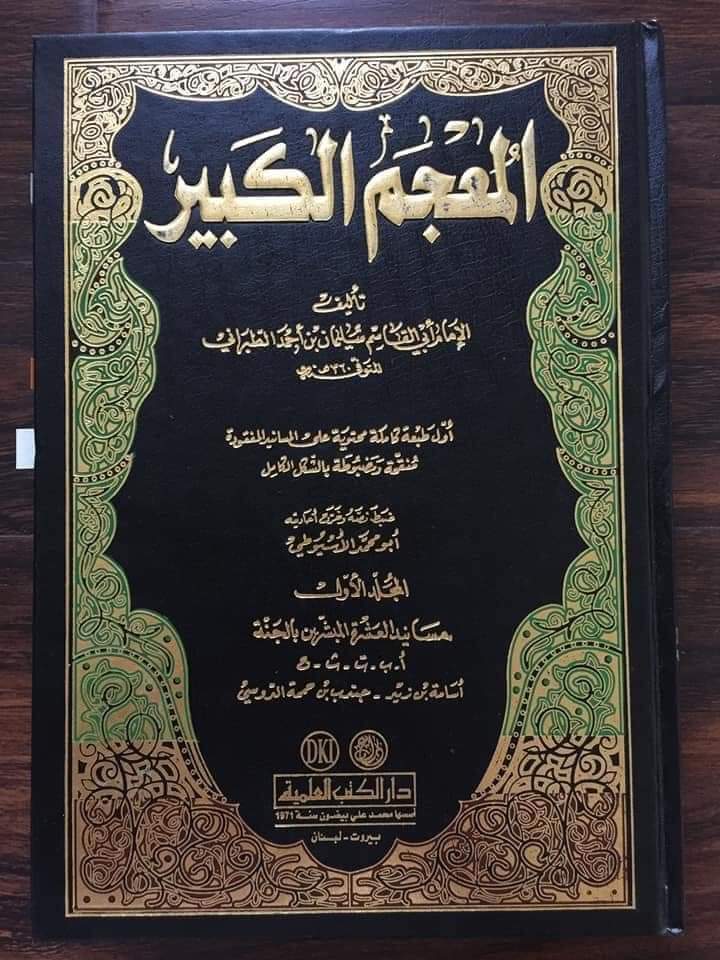 المعجم الكبير
تأليف
الإمام أبي القاسم سليمان بن أحمد الطبراني
المتوفى ٣٦٠ هـ
أول طبعة كاملة محتوية على المسانيد المفقودة
منقوة ومضبوطة بالشكل الكامل
ضبط نصه وخرج أحاديثه
أبو محمد الأسيوطي
المجلد الأول
مسانيد العشرة المبشرين بالجنة
أ - ب - ت - ث - ج
أسامة بن زيد - جندب بن حممة الدوسي
DKI
دار الكتب العلمية
أسسها محمد علي بيضون سنة 1971
بيروت - لبنان